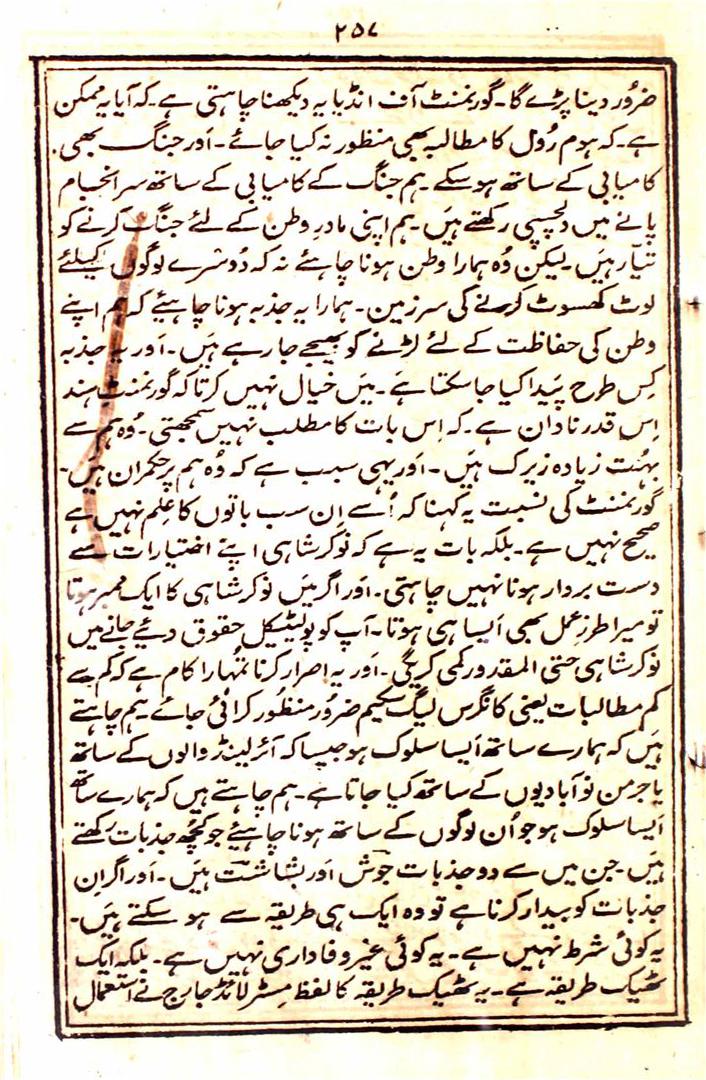 ۲۵۷
ضرور دینا پڑے گا۔ گورنمنٹ آف انڈیا یہ دیکھنا چاہتی ہے۔ کہ آیا یہ ممکن
ہے۔ کہ ہوم رُول کا مطالبہ بھی منظور نہ کیا جائے۔ اَور جنگ بھی۔
کامیابی کے ساتھ ہو سکے۔ ہم جنگ کے کامیابی کے ساتھ سرانجام
پانے میں دلچسپی رکھتے ہیَں۔ ہم اپنی مادرِ وطن کے لئے جنگ کرنے کو
تیّار ہیَں۔ لیکن وُہ ہمارا وطن ہونا چاہئے نہ کہ دُوسرے لوگوں کیلئے
لوٹ کھسوٹ کرنے کی سرزمین۔ ہمارا یہ جذبہ ہونا چاہیئے کہ ہم اپنے
وطن کی حفاظت کے لئے لڑنے کو بھیجے جا رہے ہیَں۔ اَور یہ جذبہ
کِس طرح پَیدا کیا جا سکتا ہے۔ میَں خیال نہیں کرتا کہ گورنمنٹ ہند
اِس قدر نادان ہے۔ کہ اِس بات کا مطلب نہیں سمجھتی۔ وُہ ہم سے
بہُت زیادہ زیرک ہیَں۔ اَور یہی سبب ہے کہ وُہ ہم پر حکمران ہیَں۔
گورنمنٹ کی نسبت یہ کہنا کہ اُسے اِن سب باتوں کا عِلم نہیں ہے
صحیح نہیں ہے۔ بلکہ بات یہ ہے کہ نوکر شاہی اپنے اختیارات سے
دست بردار ہونا نہیں چاہتی۔ اَور اگر میَں نوکر شاہی کا ایک ممبر ہوتا
تو میرا طرزِ عمل بھی اَیسا ہی ہوتا۔ آپ کو پولیٹیکل حقوق دئیے جانے میں
نوکر شاہی حتی المقدور کمی کریگی۔ اَور یہ اصرار کرنا تُمہارا کام ہے کہ کم سے
کم مطالبات یعنی کانگرس لیگ سکیم ضرُور منظُور کرائی جائے۔ ہم چاہتے
ہیَں کہ ہمارے ساتھ اَیسا سلوک ہو جیسا کہ آئرلینڈ والوں کے ساتھ
یا جرمن نو آبادیوں کے ساتھ کیا جاتا ہے۔ ہم چاہتے ہیں کہ ہمارے ساتھ
اَیسا سلوک ہو جو اُن لوگوں کے ساتھ ہونا چاہیئے جو کچُھ جذبات رکھتے
ہیَں۔ جن میں سے دو جذبات جوش اَور بشاشت ہیَں۔ اَور اگر اِن
جذبات کو بیدار کرنا ہے تو وہ ایک ہی طریقہ سے ہو سکتے ہیَں۔
یہ کوئی شرط نہیں ہے۔ یہ کوئی غیر وفاداری نہیں ہے۔ بلکہ ایک
ٹھیک طریقہ ہے۔ یہ ٹھیک طریقہ کا لفظ مِسٹر لائڈ جارج نے استعمال